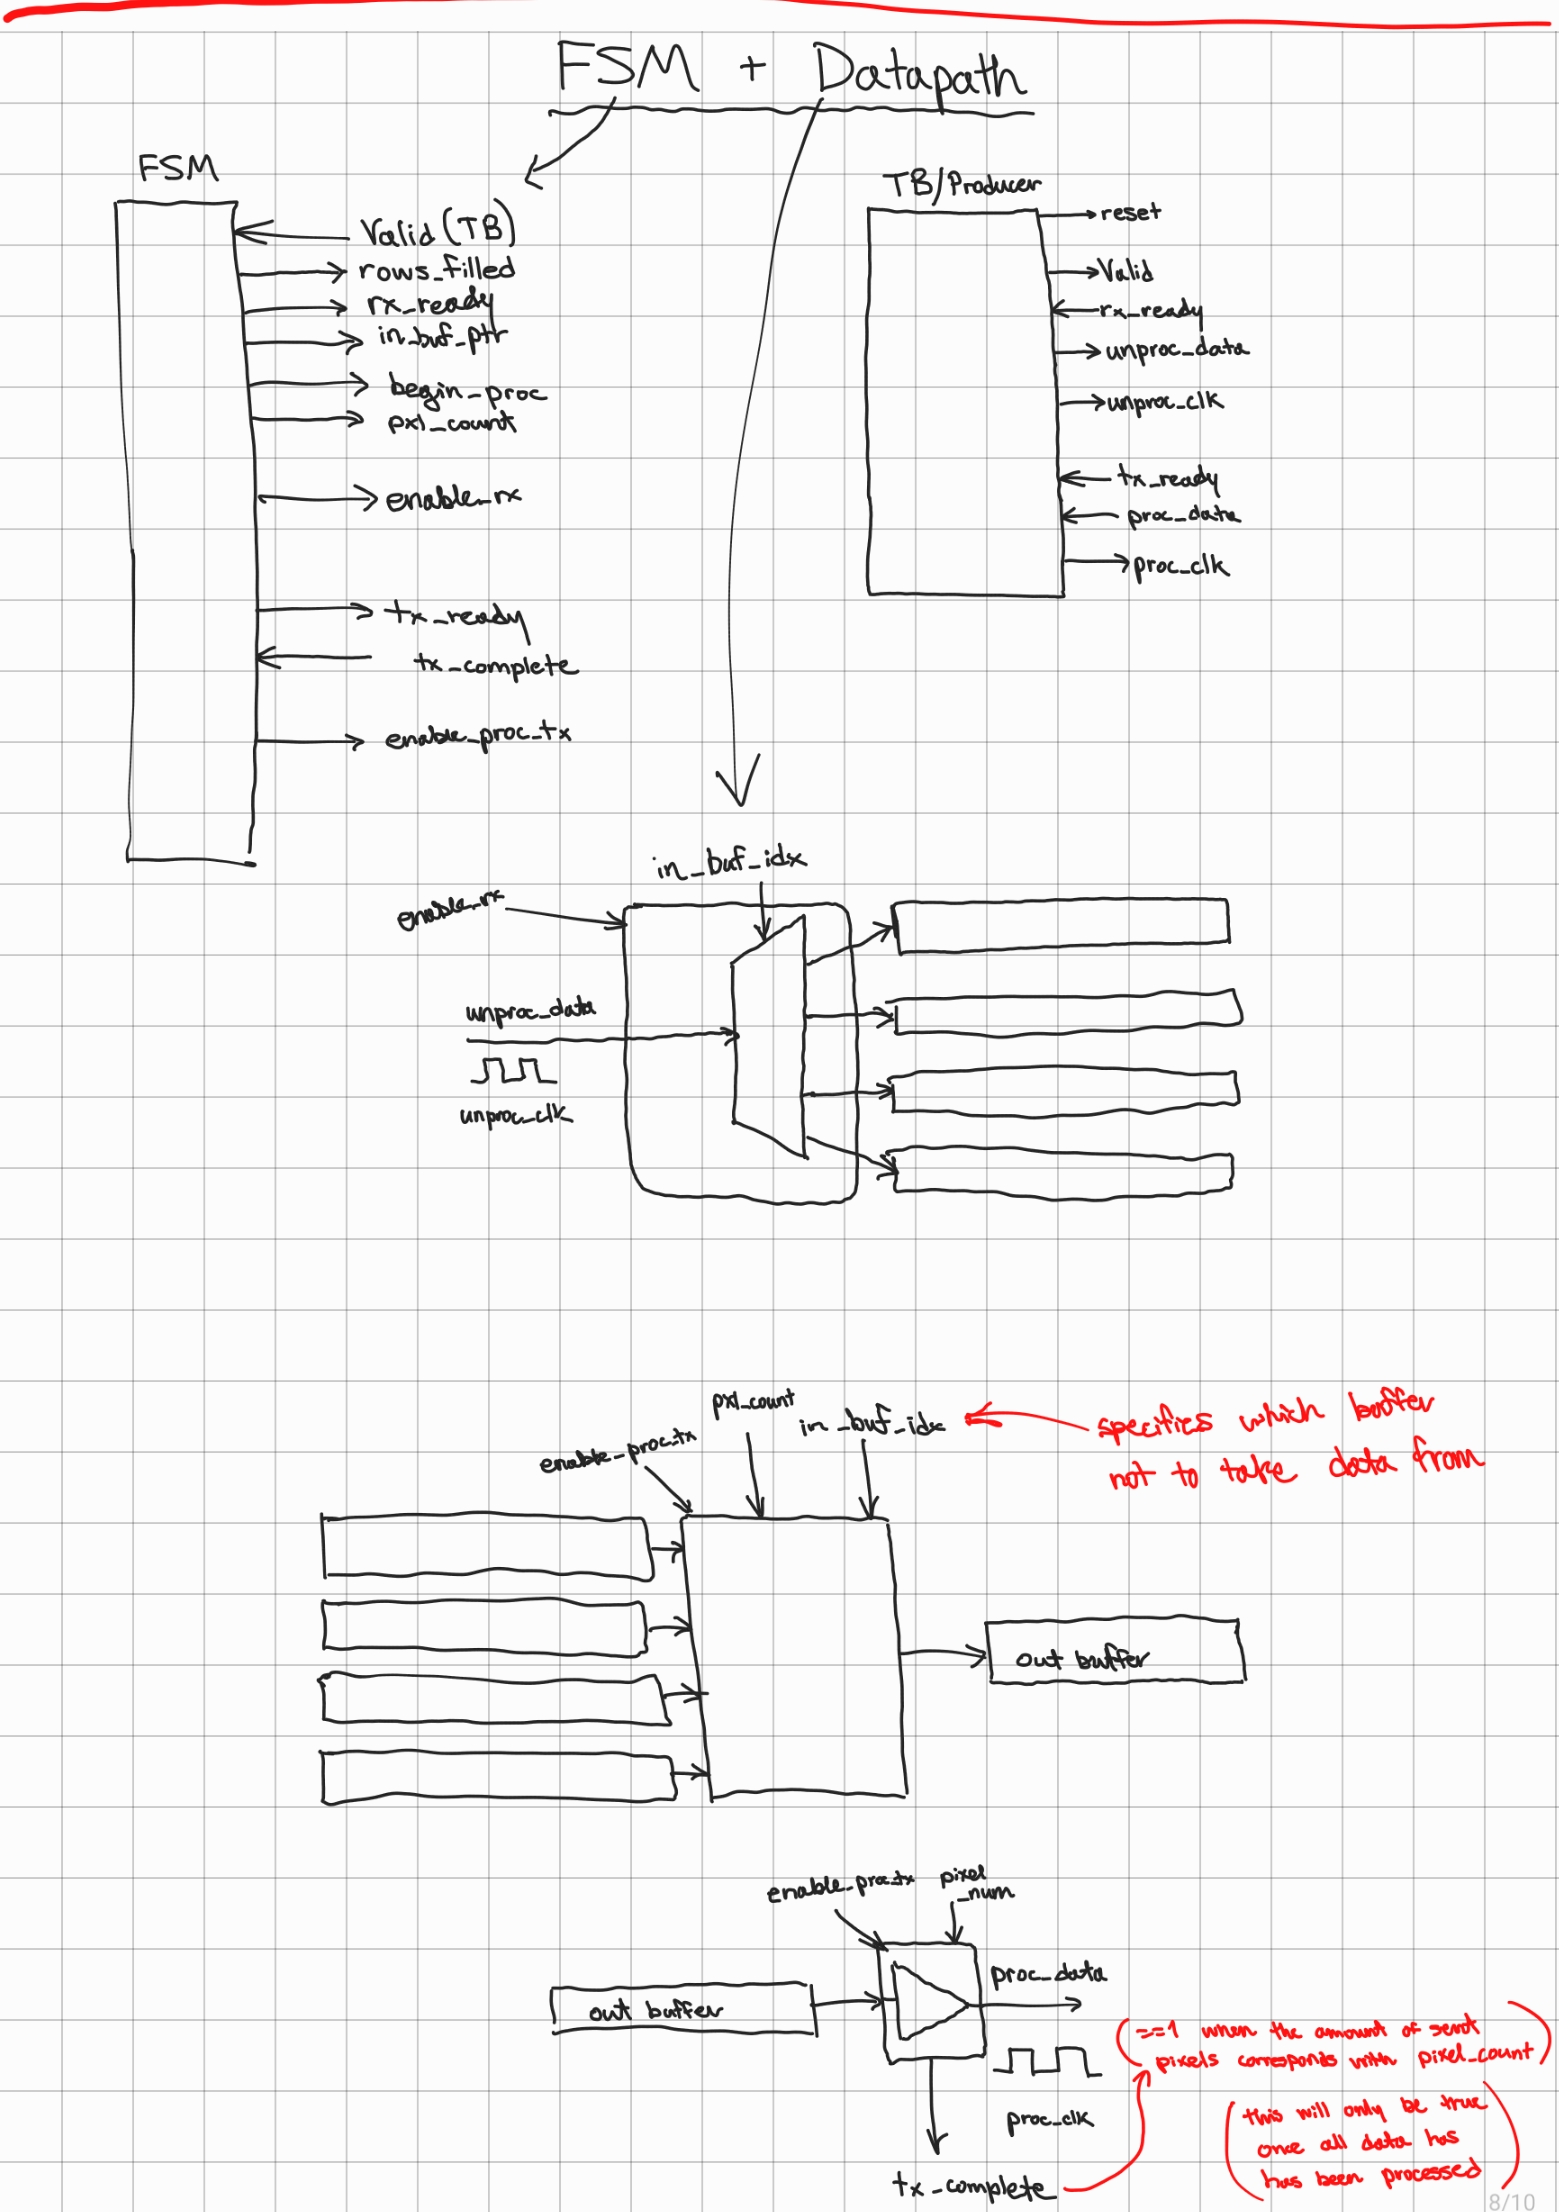 FSM + Datapath
FSM
Valid (TB)
rows_filled
rx_ready
in_buf_ptr
begin_proc
pxl_count
enable_rx
tx_ready
tx_complete
enable_proc_tx
TB/Producer
reset
Valid
rx_ready
unproc_data
unproc_clk
tx_ready
proc_data
proc_clk
in_buf_idx
enable_rx
unproc_data
unproc_clk
pxl_count
in_buf_idx
enable_proc_tx
specifies which buffer
not to take data from
out buffer
enable_proc_tx
pixel
_num
out buffer
proc_data
proc_clk
tx_complete
(==1 when the amount of sent
pixels corresponds with pixel_count)
(this will only be true
once all data has
has been processed)
8/10